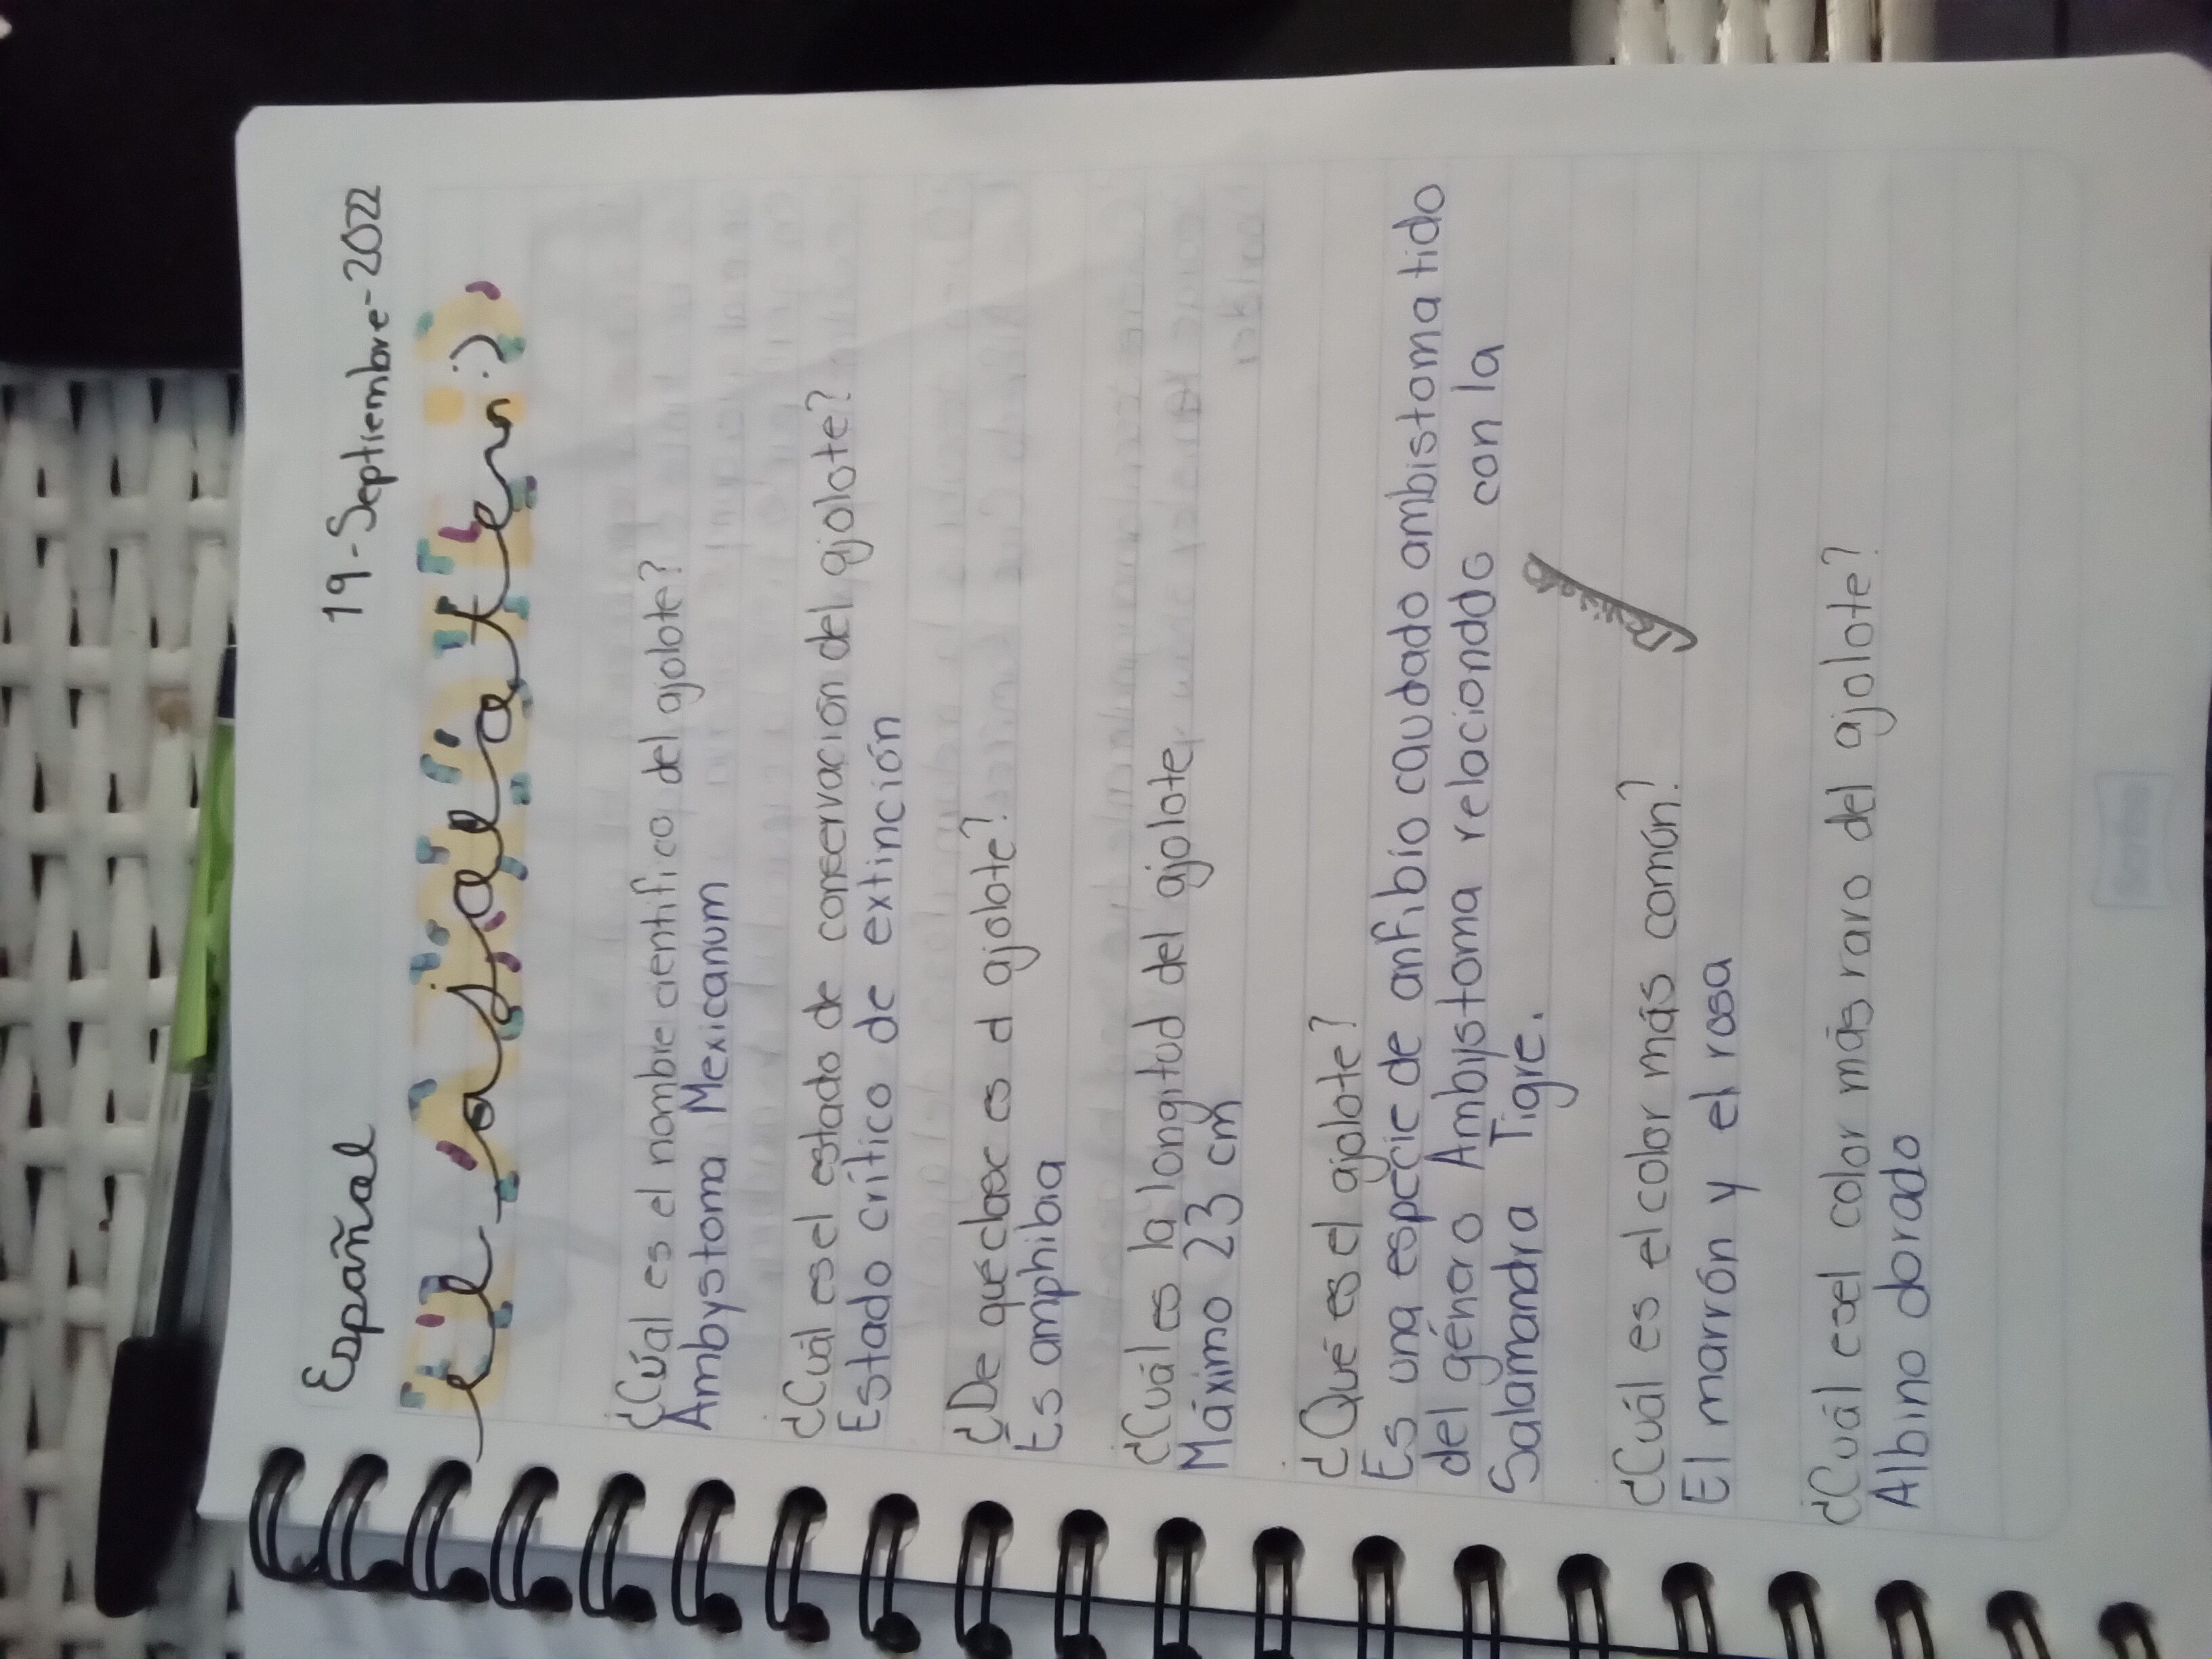 Español 19-Septiembre-2022
el ajolote :)
¿Cúal es el nombre cientifico del ajolote?
Ambystoma Mexicanum
¿Cuál es el estado de conservación del ajolote?
Estado crítico de extinción
¿De qué clase es el ajolote?
Es amphibia
¿Cuál es la longitud del ajolote
Máximo 23 cm
¿Qué es el ajolote?
Es una especie de anfibio caudado ambistomatido
del género Ambystoma relaciondo con la
Salamandra Tigre.
Revisado
¿Cuál es el color más común?
El marrón y el rosa
¿Cuál es el color más raro del ajolote?
Albino dorado